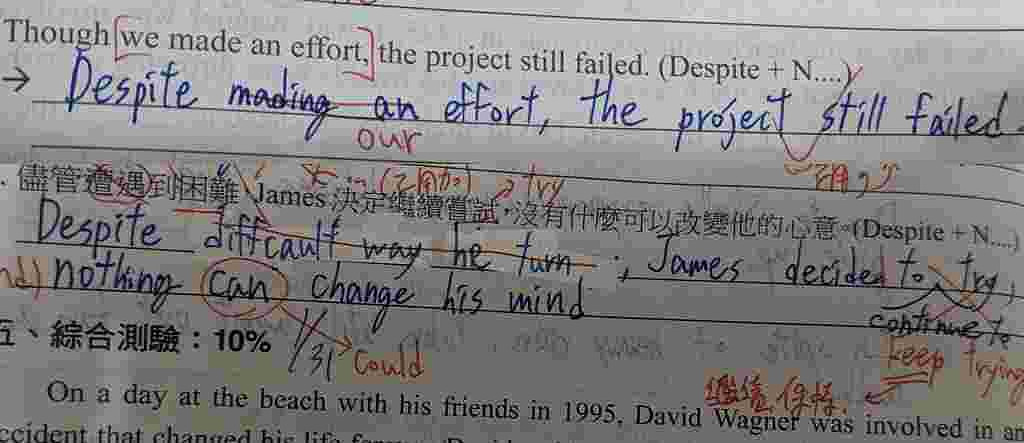 Though we made an effort, the project still failed. (Despite + N....)
→ Despite mading an effort, the project still failed.
our
不用 so
儘管遭遇到困難 James 決定繼續嘗試，沒有什麼可以改變他的心意。(Despite + N....)
(不用加) → try
Despite diffcault way he turn, James decided to try,
nd) nothing can change his mind
continue to
could
keep trying
五、綜合測驗：10%
繼續、保持
On a day at the beach with his friends in 1995, David Wagner was involved in an
ccident that changed his life